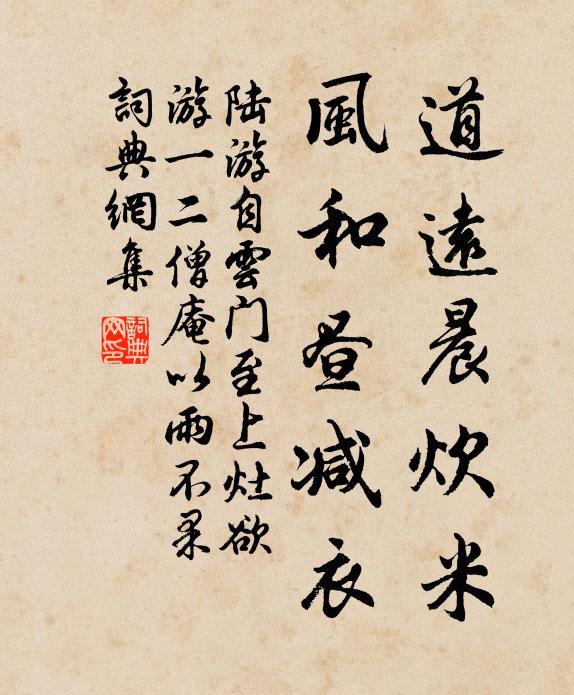 道遠晨炊米
風和昼减衣
陆游自雲门至上灶欲
游一二僧庵以雨不果
詞典網集
詞典
网印